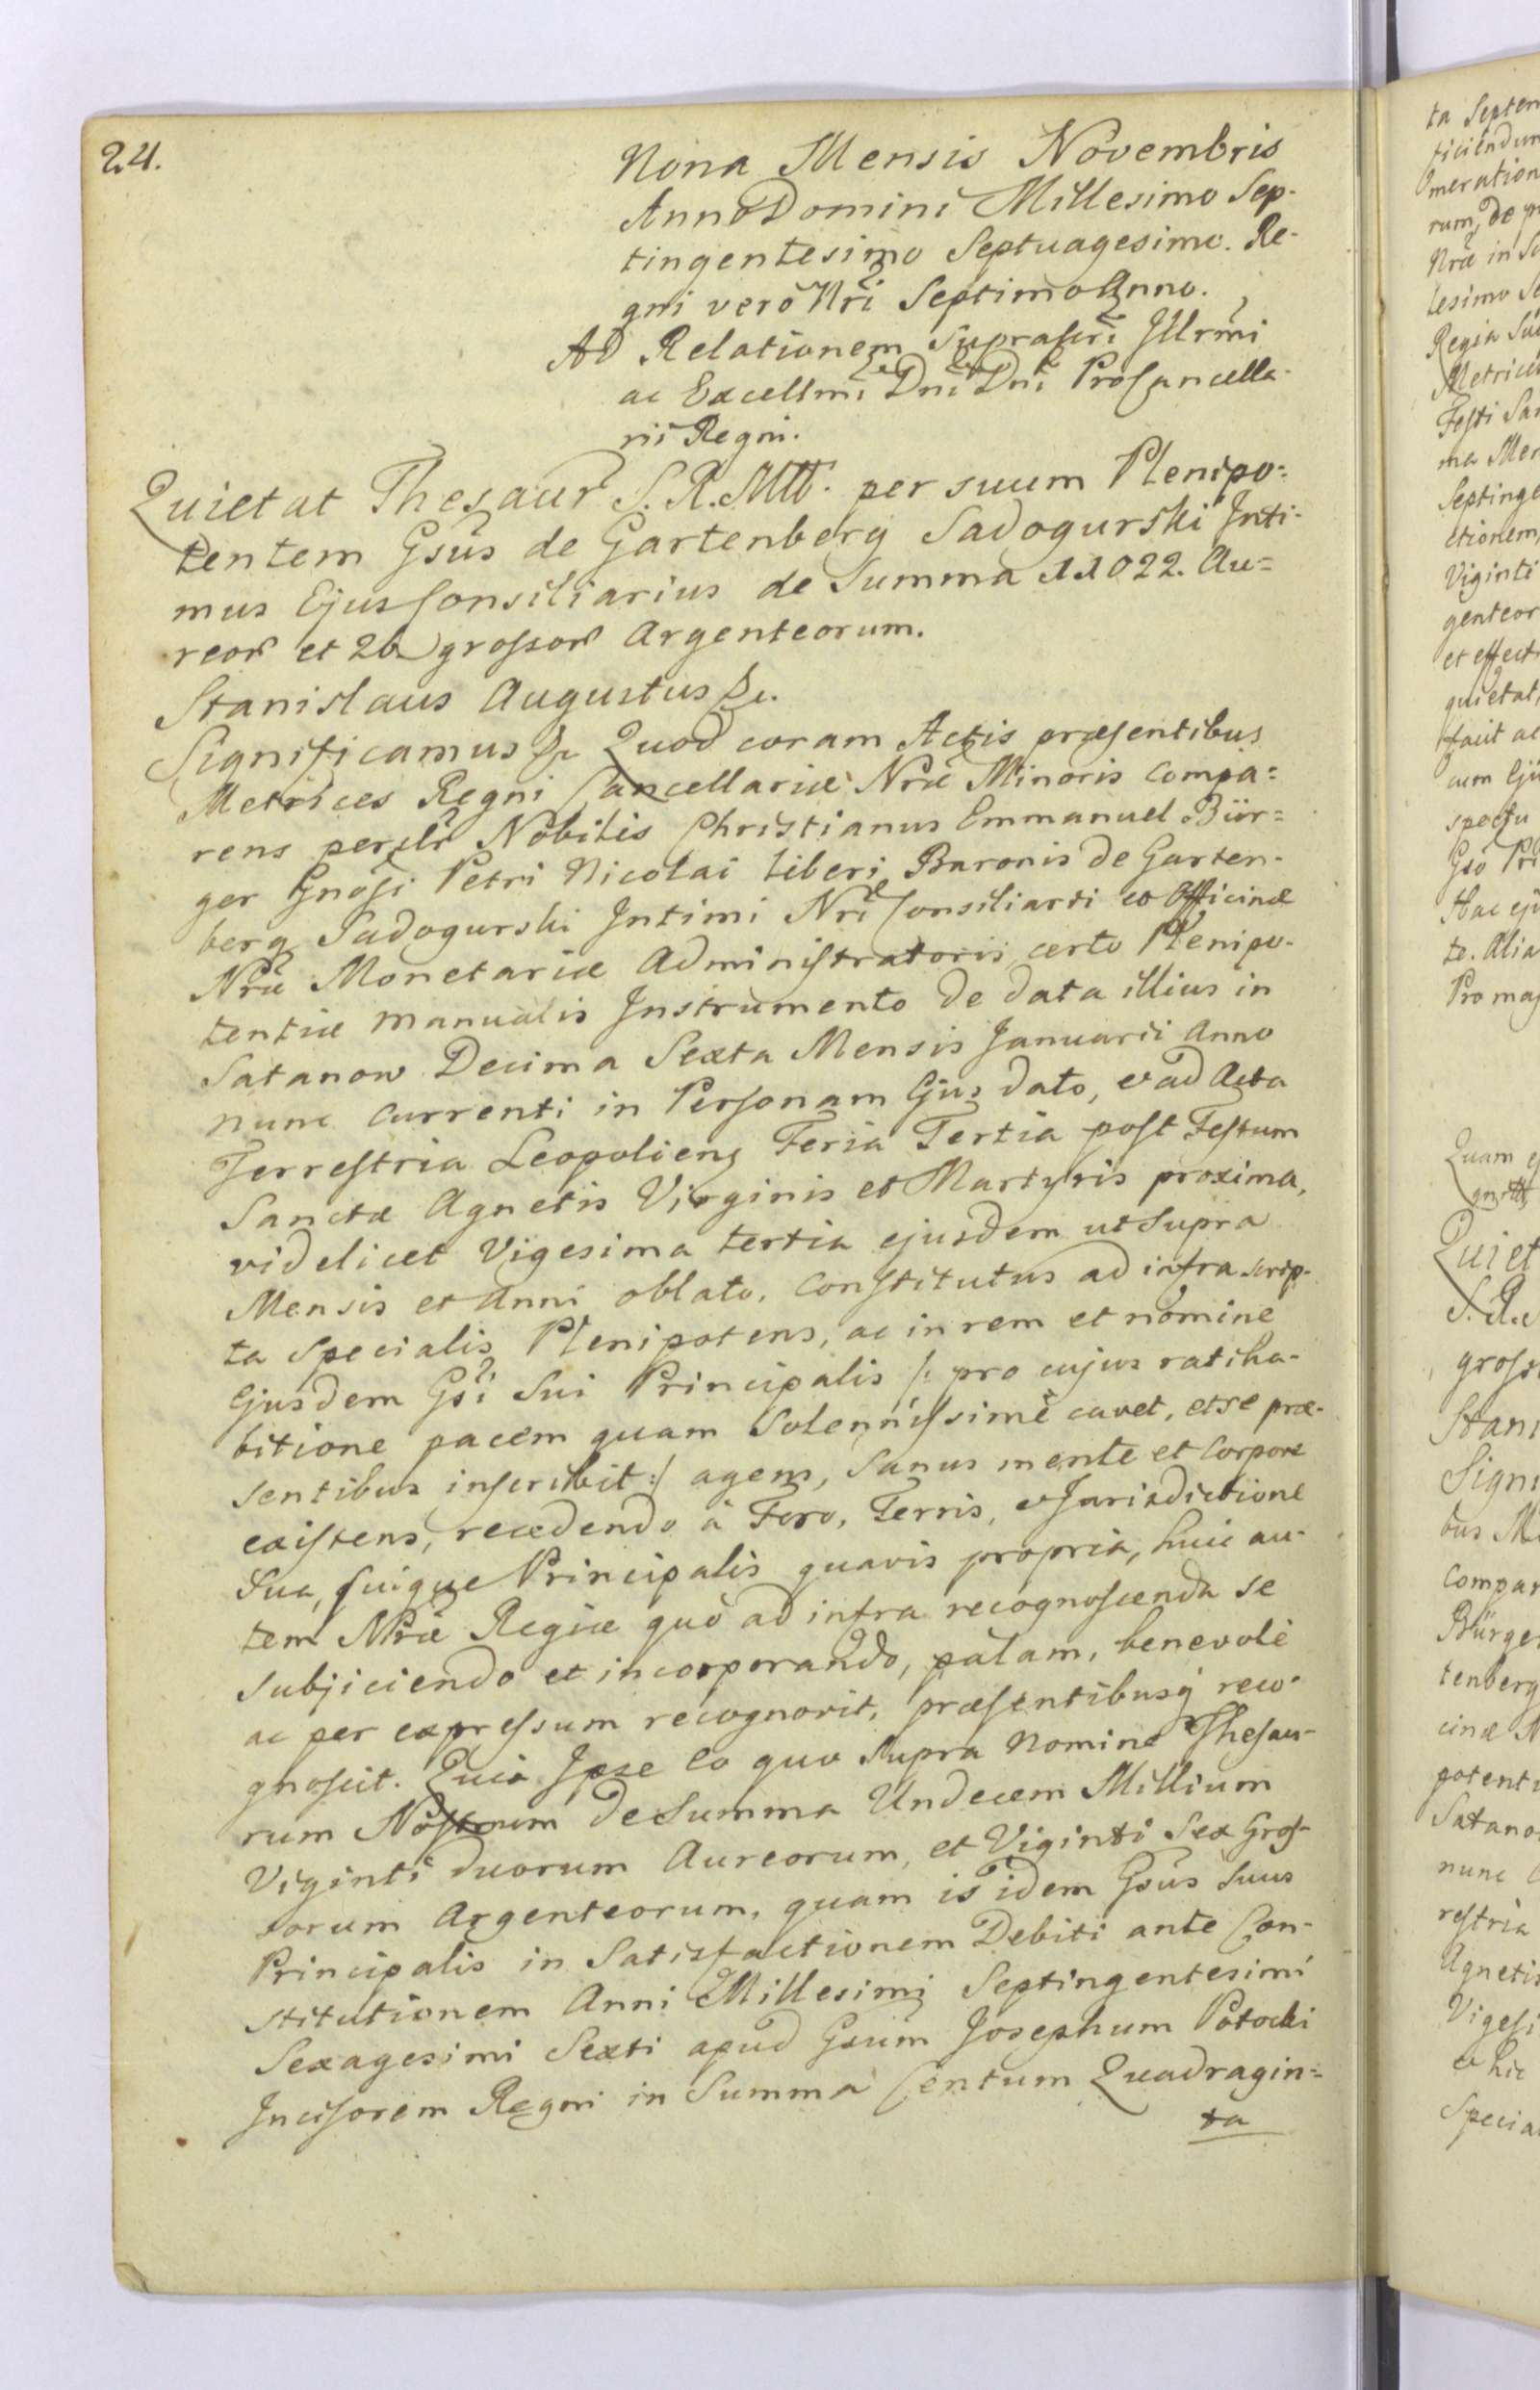 24.
Nona Mensis Novembris
Anno Domini Millesimo Sep-
tingentesimo Septuagesimo. Re-
gni verò Nri Septimo Anno.
Ad Relationem suprascri Illrmi
ac Excellmi Dni Dni ProCancella-
rii Regni.
Quietat Thesaur S. R. Mtt. per suum Plenipo-
tentem Gsus de Gartenberg Sadogurski Inti-
mus Ejus Consiliarius de Summa 11022. Au-
reor et 26 grossor Argenteorum.
Stanislaus Augustus &c.
Significamus &c Quod coram Actis præsentibus
Metrices Regni Cancellariæ Nræ Minoris Compa-
rens perslr Nobilis Christianus Emmanuel Bür-
ger Gnosi Petri Nicolai Liberi Baronis de Garten-
berg Sadogurski Intimi Nri Consiliarii et Officinæ
Nræ Monetariæ Administratoris, certo Plenipo-
tentiæ manualis Instrumento de data illius in
Satanow Decima Sexta Mensis Januarii Anno
nunc Currenti in Personam Ejus dato, et ad Acta
Terrestria Leopoliens Feria Tertia post Festum
Sanctæ Agnetis Virginis et Martyris proxima,
videlicet Vigesima tertia ejusdem ut supra
Mensis et Anni oblato, Constitutus ad infra scrip-
ta specialis Plenipotens, ac in rem et nomine
Ejusdem Gsi Sui Principalis /: pro cujus ratiha-
bitione pacem quam Solennissimè cavet, et se præ-
sentibus inscribit :/ agens, Sanus mente et Corpore
existens, recedendo à Foro, Terris, et Jurisdictione
Sua, suique Principalis quavis propria, huic au-
tem Nræ Regiæ quò ad infra recognoscenda se
subjiciendo et incorporando, palam, benevolè
ac per expressum recognovit, præsentibusq reco-
gnoscit. Quia Ipse Eo quo supra Nomine Thesau-
rum Nostrum de Summa Undecem Millium
Viginti duorum Aureorum, et Viginti Sex Gros-
sorum Argenteorum, quam is idem Gsus Suus
Principalis in Satisfactionem Debiti ante Con-
stitutionem Anni Millesimi Septingentesimi
Sexagesimi Sexti apud Gsum Josephum Potocki
Incisorem Regni in Summa Centum Quadragin-
ta